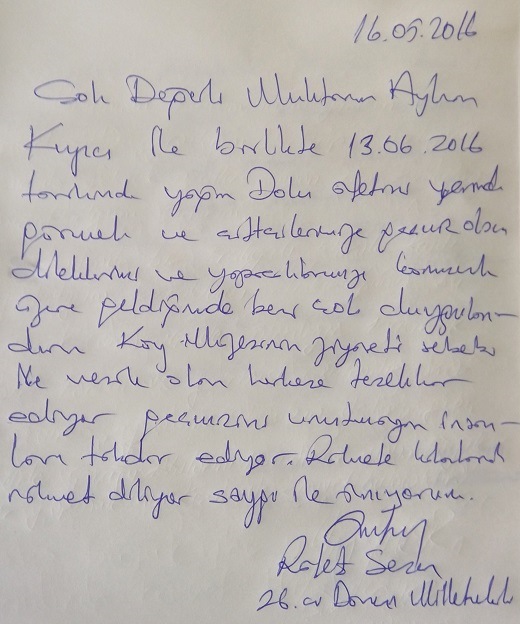 16.05.2016
Çok Değerli Muhtarım Ayhan
Kuyucı ile birlikte 13.06.2016
tarihinde yağan Dolu afetini yerinde
görmek ve çiftçilerimize geçmiş olsun
dileklerimi ve yapacaklarımızı konuşmak
üzere geldiğimde beni çok duygulan-
dıran Köy Müzesinin ziyareti sebebi
ile vesile olan herkese teşekkür
ediyor geçmişini unutmayan insan-
ları takdir ediyor. Rahmete
rahmet diliyor saygı ile anıyorum.
26. Dönem Milletvekili